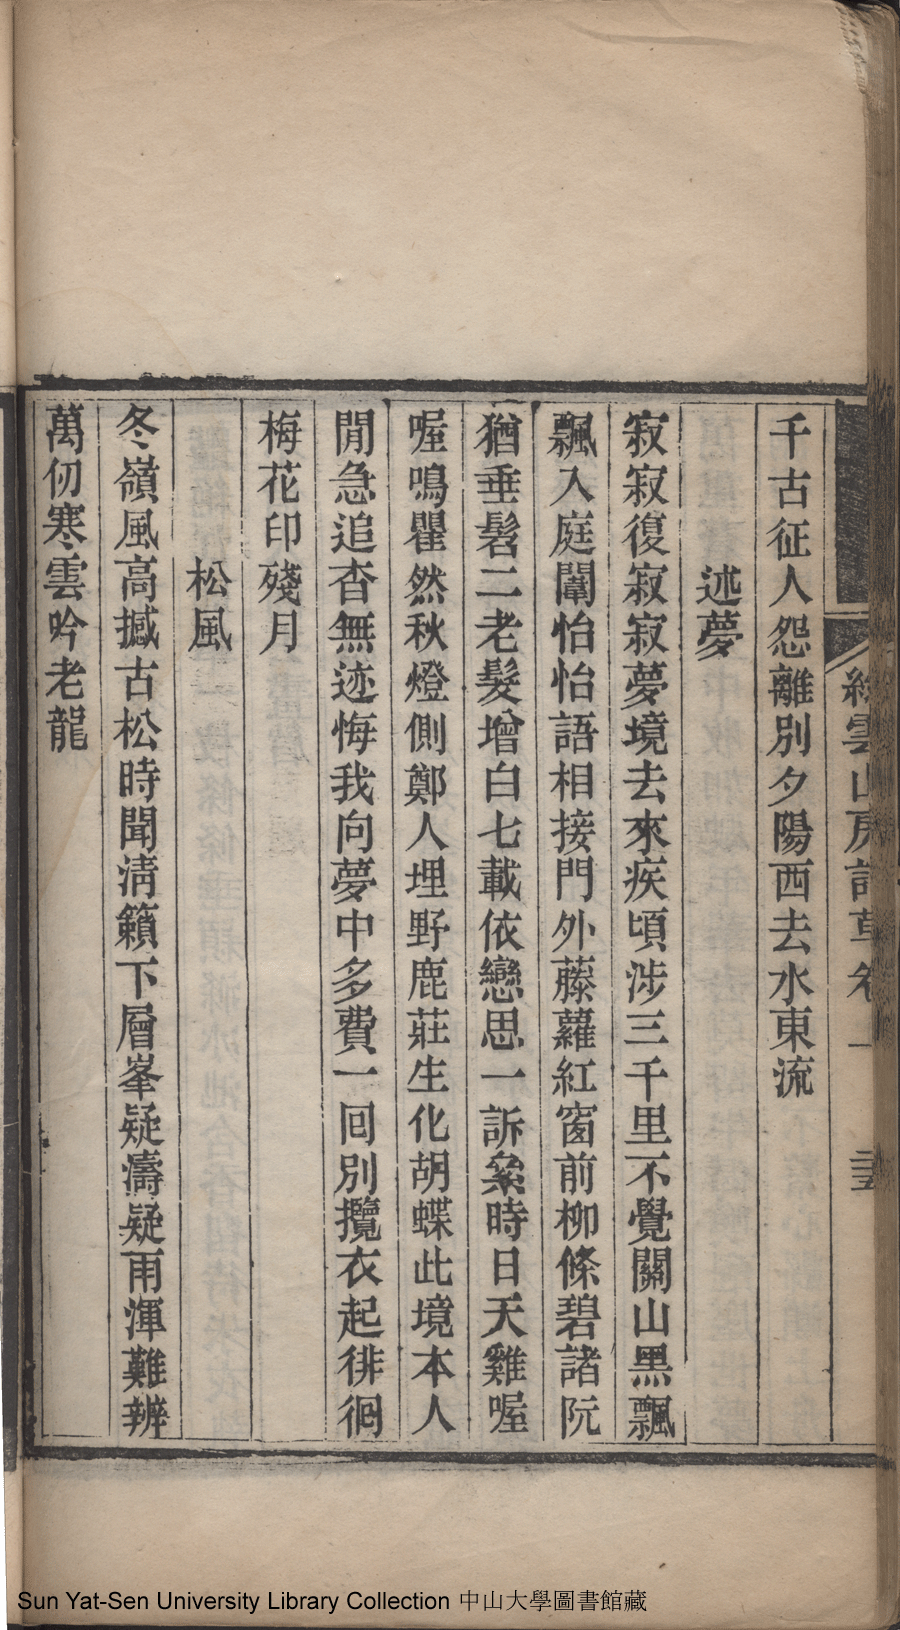 雲山房詩草卷一
千古征人怨離別夕陽西去水東流
述夢
寂寂復寂寂夢境去來疾頃涉三千里不覺關山黑飄
飄入庭闈怡怡語相接門外藤蘿紅窗前柳條碧諸阮
猶垂髫二老髮增白七載依戀思一訴絫時日天雞喔
喔鳴瞿然秋燈側鄭人埋野鹿莊生化胡蝶此境本人
閒急追杳無迹悔我向夢中多費一回別攬衣起徘徊
梅花印殘月
松風
冬嶺風高撼古松時聞淸籟下層峯疑濤疑雨渾難辨
萬仞寒雲吟老龍
Sun Yat-Sen University Library Collection 中山大學圖書館藏